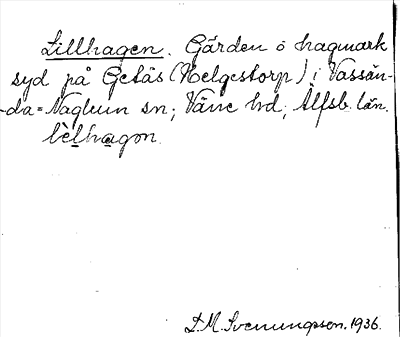 Lillhagen. Gärden o hagmark
syd på Getås (Helgestorp) i Vassän-
da-Naglum sn; Väne hd; Älfsb. län.
lèlhagon.
D.M. Svenungsson. 1936.